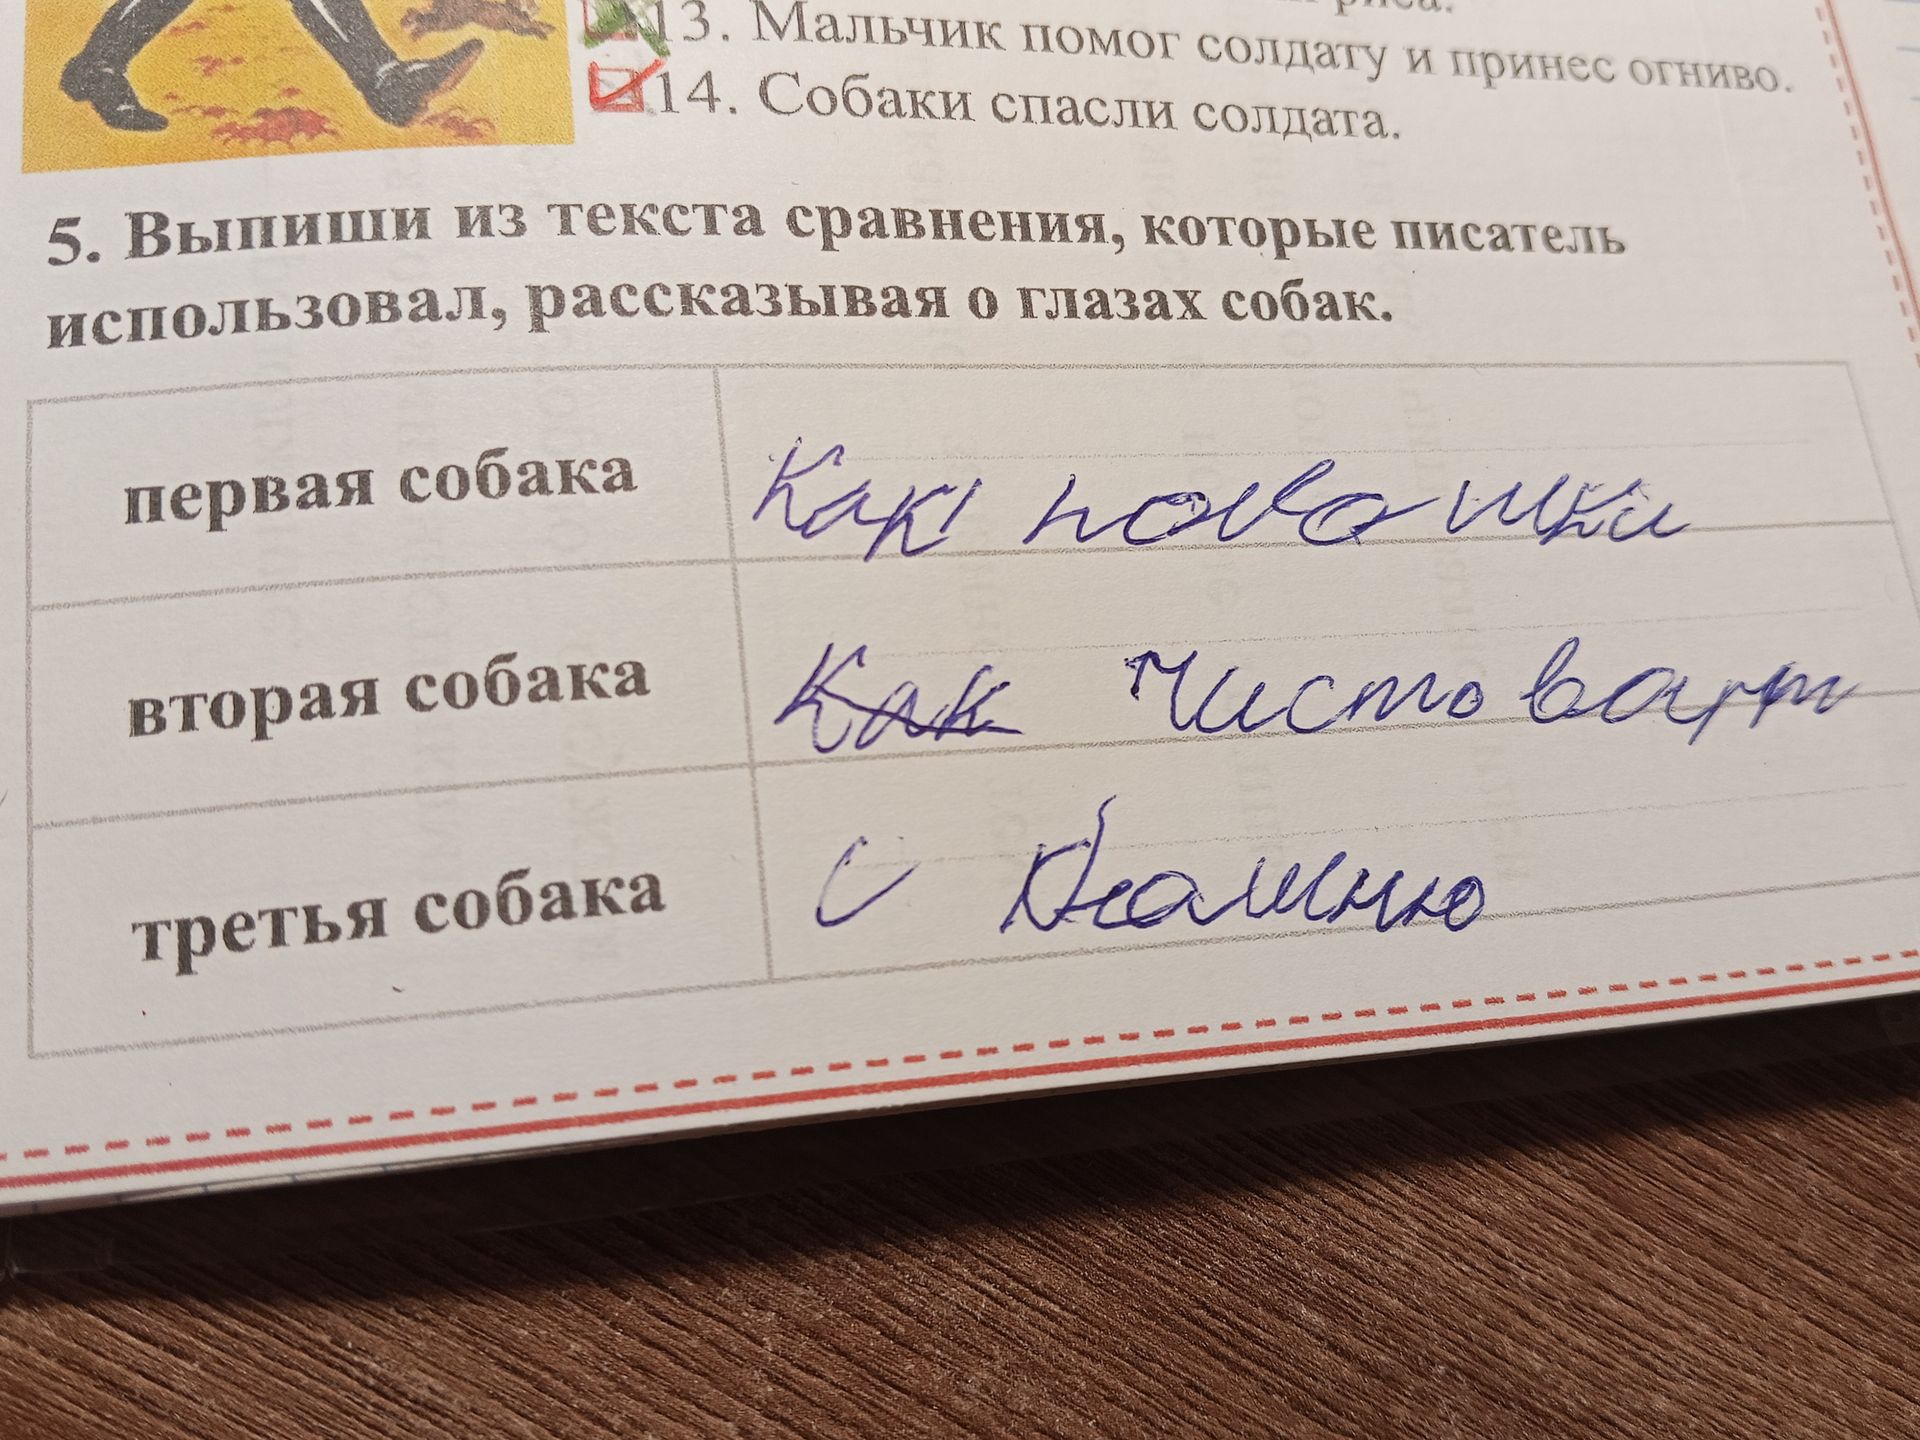 риса.
13. Мальчик помог солдату и принес огниво.
14. Собаки спасли солдата.
5. Выпиши из текста сравнения, которые писатель
использовал, рассказывая о глазах собак.
первая собака
Как
вторая собака
Как
третья собака
с